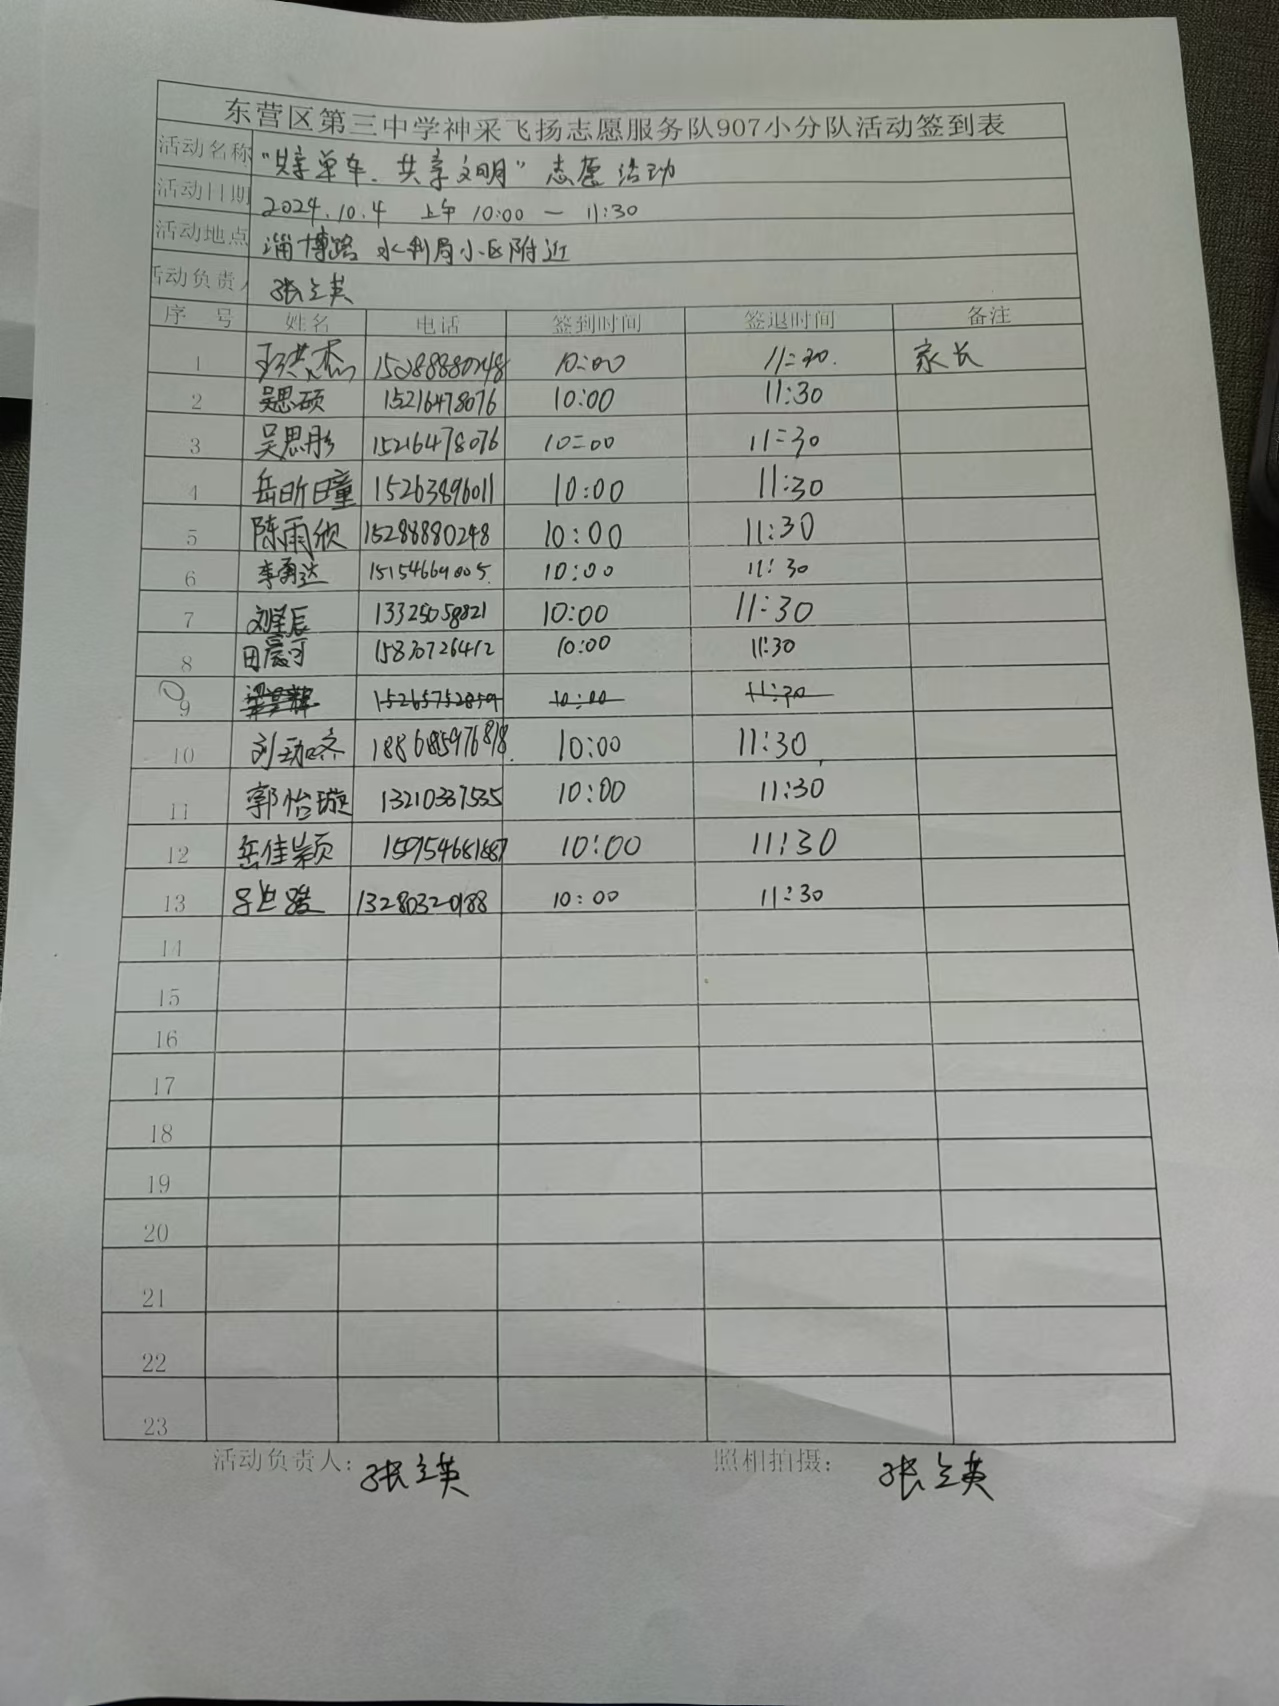 东营区第三中学神采飞扬志愿服务队907小分队活动签到表
活动名称 "共享单车、共享文明"志愿活动
活动日期 2024.10.4 上午 10:00 — 11:30
活动地点 淄博路 水利局小区附近
活动负责人 张立英
序 号 姓名 电话 签到时间 签退时间 备注
1 15288880248 10:00 11:30. 家长
2 吴思硕 15216478076 10:00 11:30
3 吴思彤 15216478076 10:00 11:30
4 岳昕瞳 15263896011 10:00 11:30
5 陈雨欣 15288880248 10:00 11:30
6 李勇达 15154669005. 10:00 11:30
7 刘星辰 13325058821 10:00 11:30
8 田晨可 15830726412 10:00 11:30
9 10:00 11:30
10 10:00 11:30
11 郭怡璇 13210337535 10:00 11:30
12 岳佳颖 10:00 11:30
13 13280320188 10:00 11:30
14
15
16
17
18
19
20
21
22
23
活动负责人：张立英 照相拍摄： 张立英